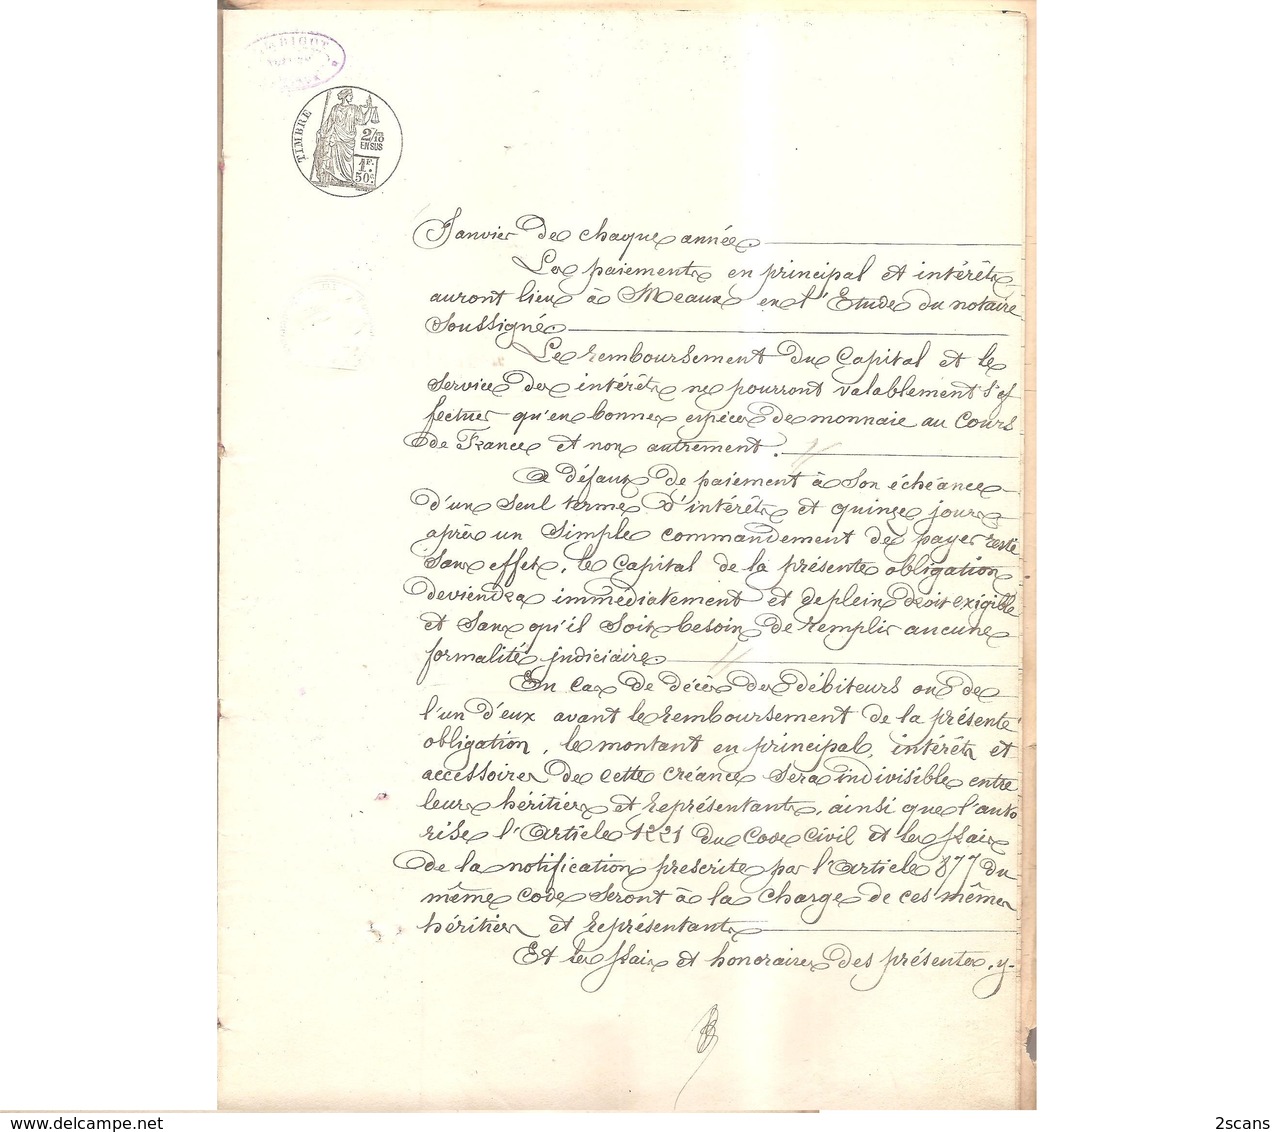 BIGOT
TIMBRE
2/10
EN SUS
1F.
50c.
Janvier de chaque année.
Les paiements en principal et intérêts
auront lieu à Meaux en l'Etude du notaire
soussigné
Le remboursement du Capital et le
service des intérêts ne pourront valablement s'ef
fectuer qu'en bonnes espèces de monnaie au cours
de France et non autrement.
A défaut de paiement à son échéance
d'un seul terme d'intérêts et quinze jours
après un simple commandement de payer resté
sans effet, le Capital de la présente obligation
deviendra immédiatement et de plein droit exigible
et sans qu'il soit besoin de remplir aucune
formalité judiciaire
En cas de décès des débiteurs ou de
l'un d'eux avant le remboursement de la présente
obligation, le montant en principal, intérêts et
accessoires de cette créance sera indivisible entre
leurs héritiers et représentants, ainsi que l'auto
rise l'Article 1221 du Code Civil et les frais
de la notification prescrite par l'Article 877 du
même code seront à la charge de ces mêmes
héritiers et représentants
Et les frais et honoraires des présentes, y-
delcampe.net
2scans